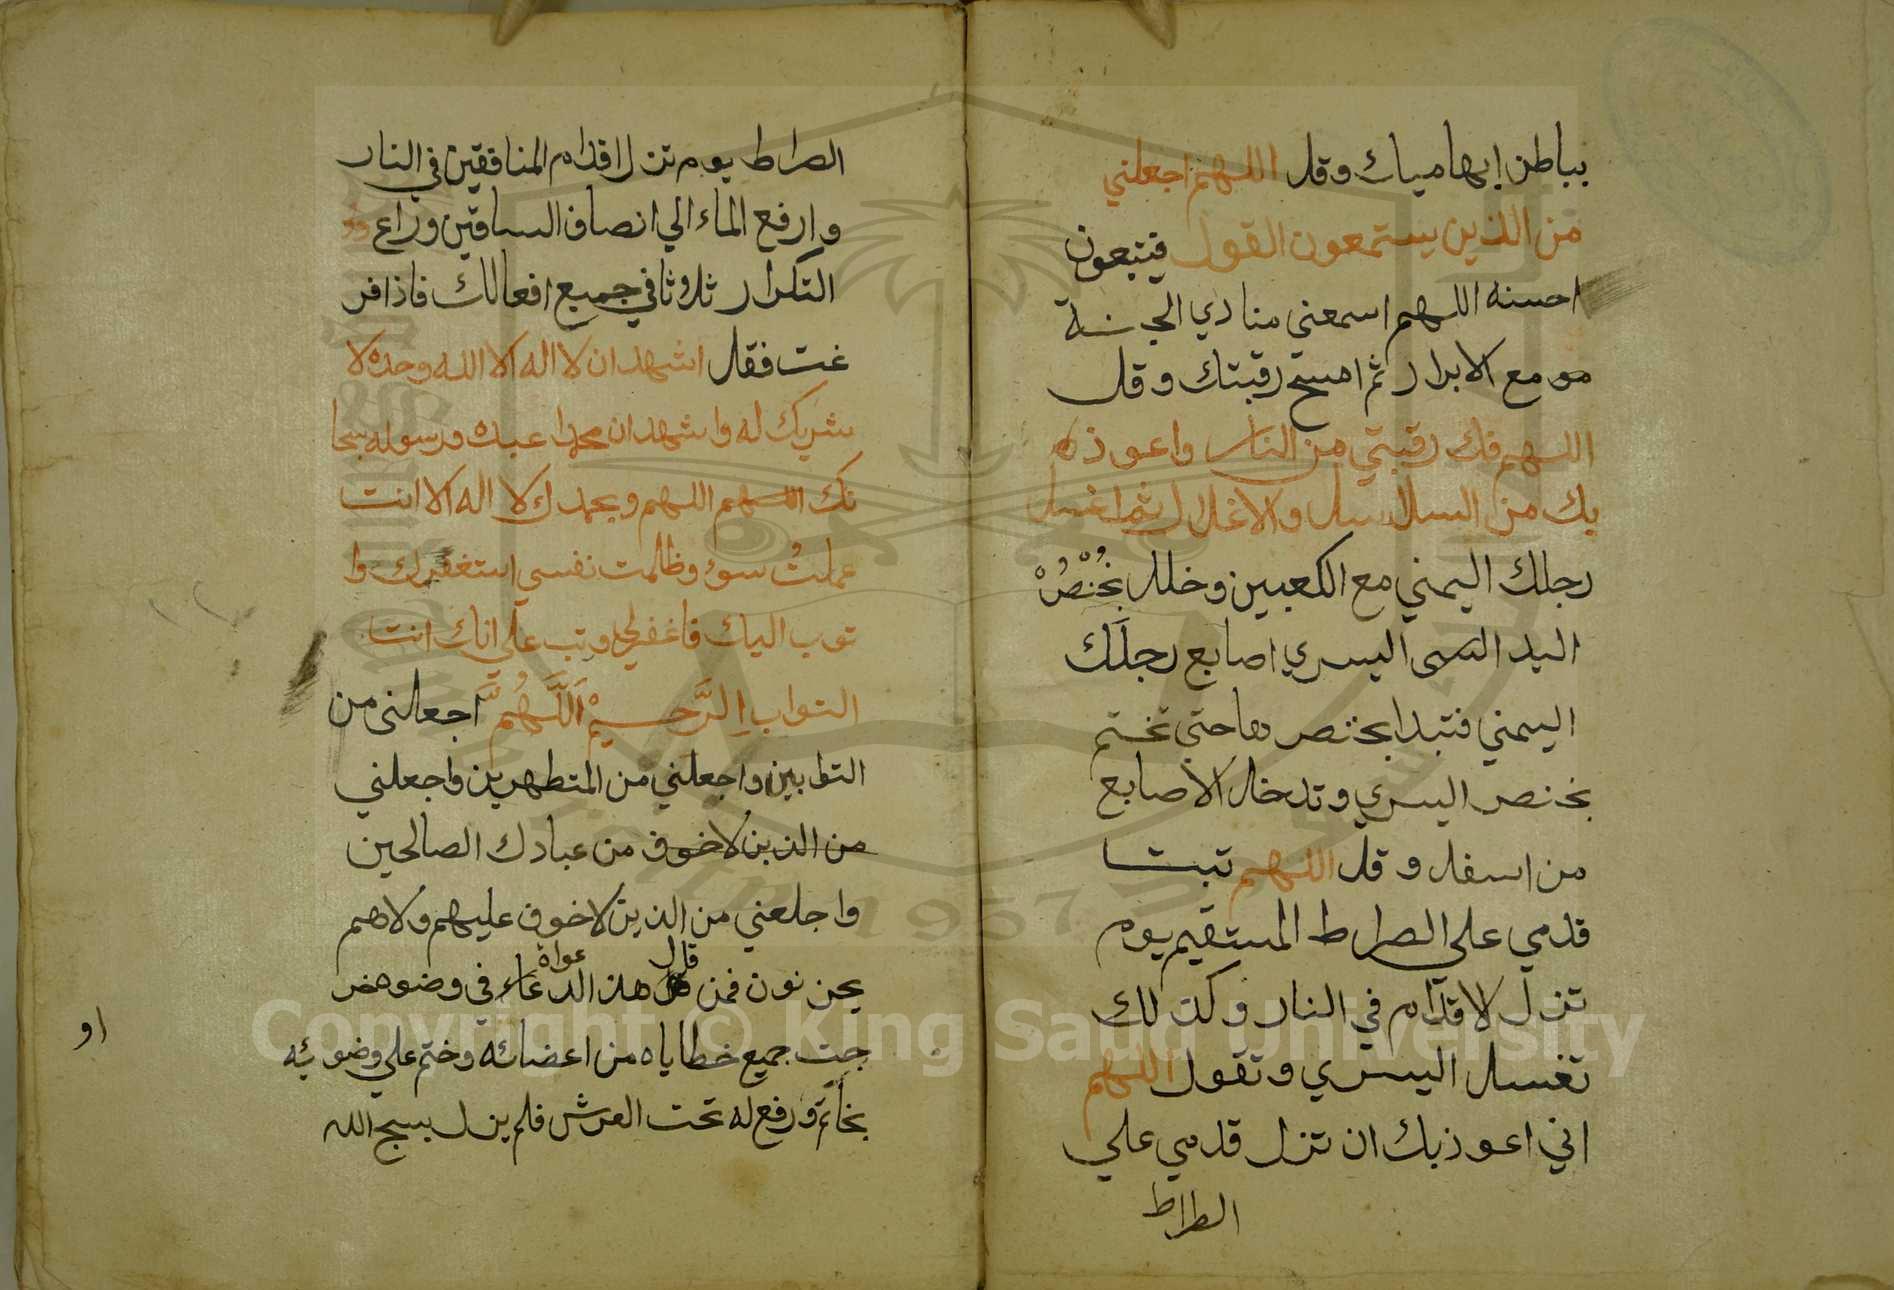 بباطن إبهامياك وقل اللهم اجعلني
من الذين يستمعون القول فيتبعون
احسنه اللهم اسمعني منادي الجنة
مو مع الابرار ثم امسح رقبتك وقل
اللهم فك رقبتي من النار واعوذ
بك من السلاسل والاغلال ثم اغسل
رجلك اليمني مع الكعبين وخلل بخُنْصُرْ
اليد اليسري اصابع رجلَك
اليمني فتبدا بخنصرها حتي تختم
بخنصر اليسري وتدخل الأصابع
من اسفل وقل اللهم تبت
قدمي علي الصراط المستقيم يوم
تزل الاقدام في النار وكذلك
تغسل اليسري وتقول اللهم
اني اعوذ بك ان تزل قدمي علي
الطراط
الصراط يوم تزل اقدام المنافقين في النار
وارفع الماء الي انصاف الساقين وراع
التكرار ثلاوثا في جميع افعالك فاذا فر
غت فقل اشهد ان لا اله الا الله وحده لا
شريك له واشهد ان محمدا عبده ورسوله سبحا
نك اللهم اللهم وبحمدك لا اله الا انت
عملتُ سوء وظلمت نفسي استغفرك وا
توب اليك فاغفرلي وتب علي انك انت
التواب الرَّحيمْ اَللَّهُمَّ اجعلنى من
التوابين واجعلني من المتطهرين واجعلني
من الذين لا خوف من عبادك الصالحين
واجلعني من الذين لا خوف عليهم ولاهم
يحزنون فمن قال هذا الدعاء في وضوه خر
جت جميع خطاياه من اعضائه وختم علي وضوئه
بخاتم ورفع له تحت العرش فلم يزل يسبح الله
او
Copyright © King Saud University
1957